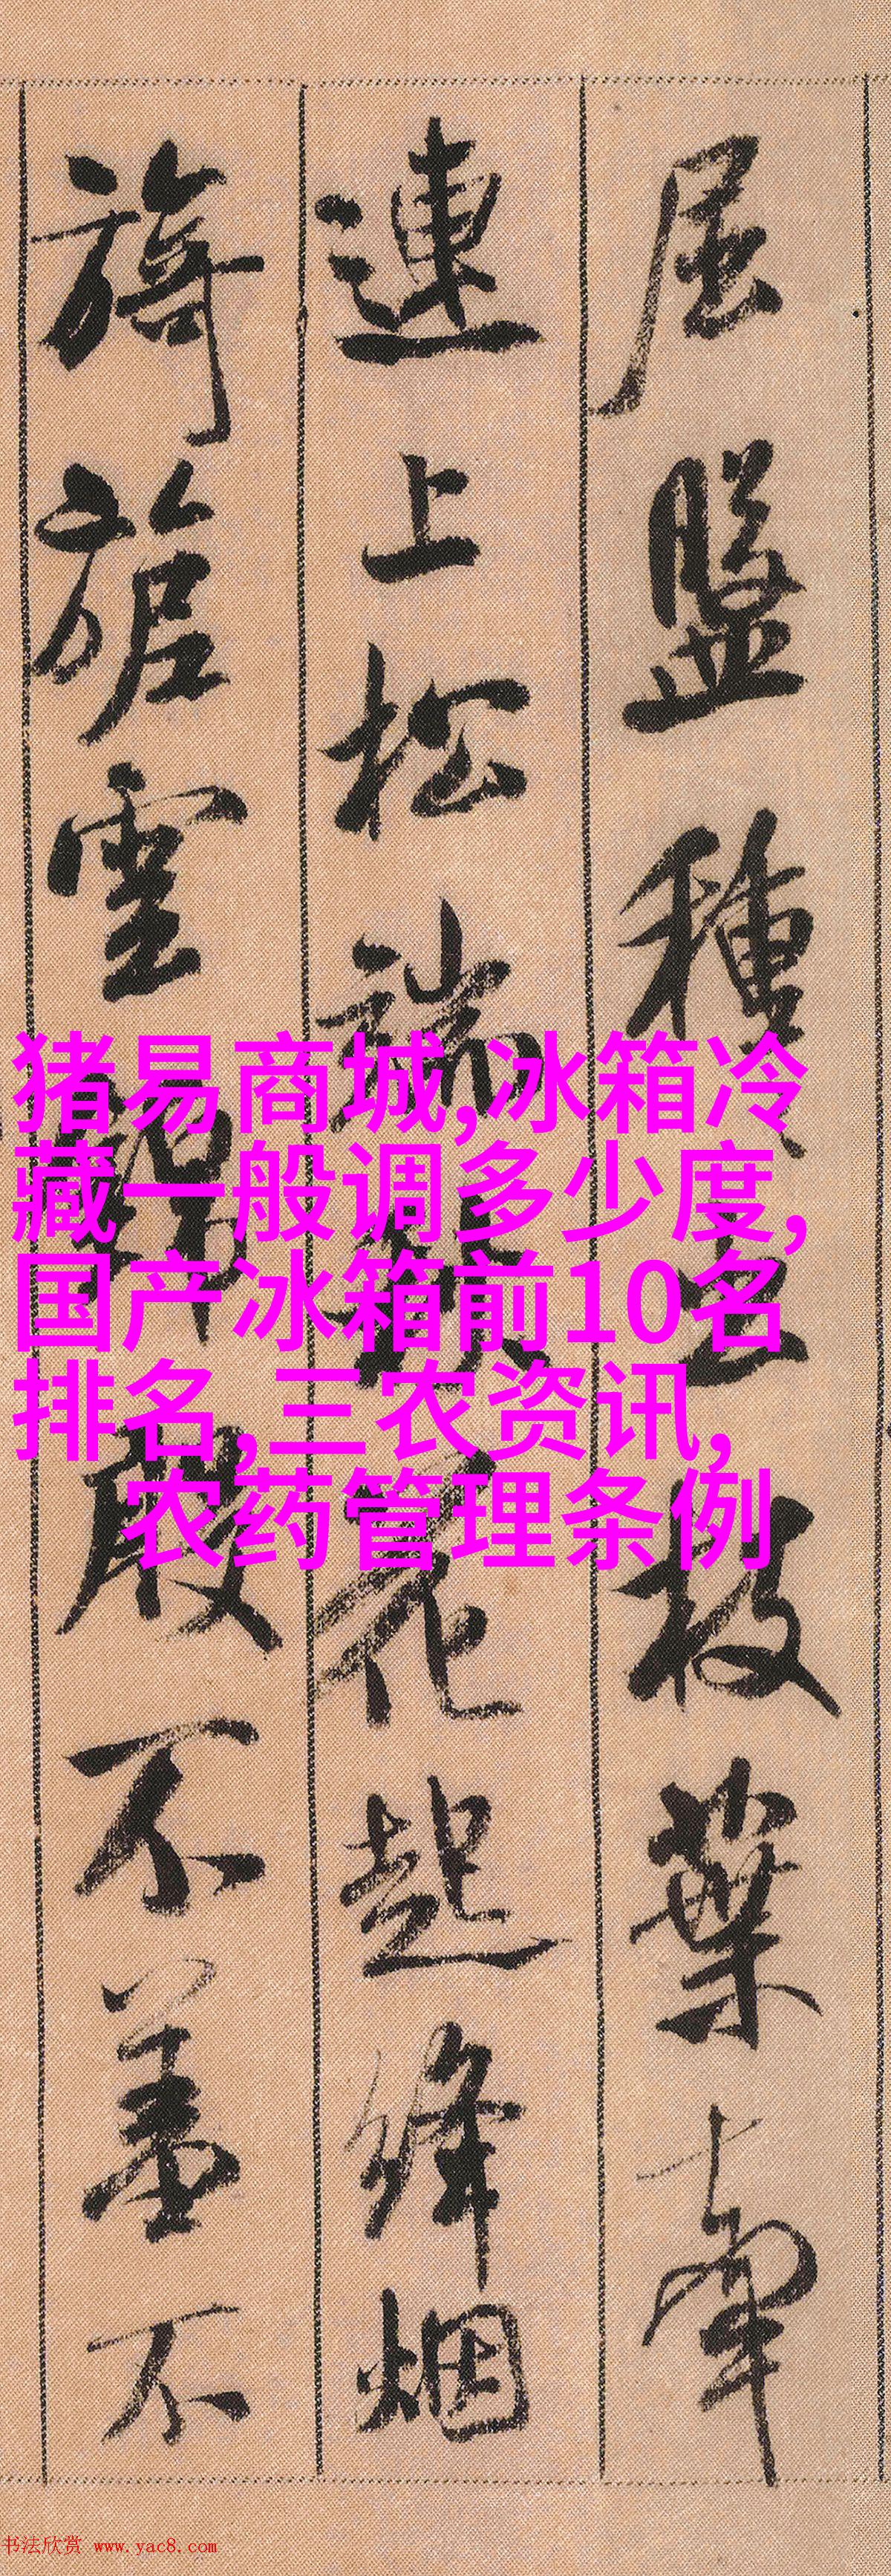 屈盤種種生枝葉牽
連上松端秋花起絳烟
旖旎雲錦殷不羞不
猪易商城,冰箱冷
藏一般调多少度,
国产冰箱前10名
排名,三农资讯,
农药管理条例
书法欣赏 www.yac8.com